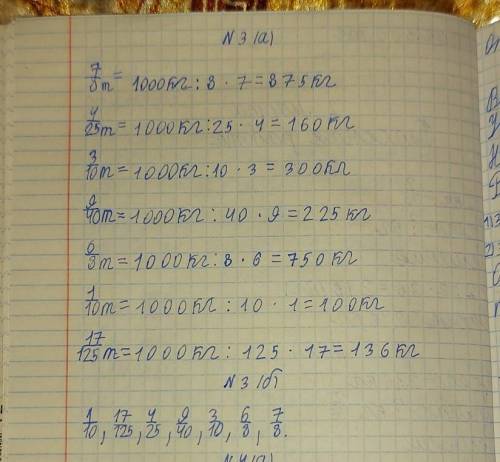 N 3 (а)
7/8 т = 1000 кг : 8 · 7 = 875 кг
4/25 т = 1000 кг : 25 · 4 = 160 кг
3/10 т = 1000 кг : 10 · 3 = 300 кг
9/40 т = 1000 кг : 40 · 9 = 225 кг
6/8 т = 1000 кг : 8 · 6 = 750 кг
1/10 т = 1000 кг : 10 · 1 = 100 кг
17/125 т = 1000 кг : 125 · 17 = 136 кг
N 3 (б)
1/10, 17/125, 4/25, 9/40, 3/10, 6/8, 7/8.